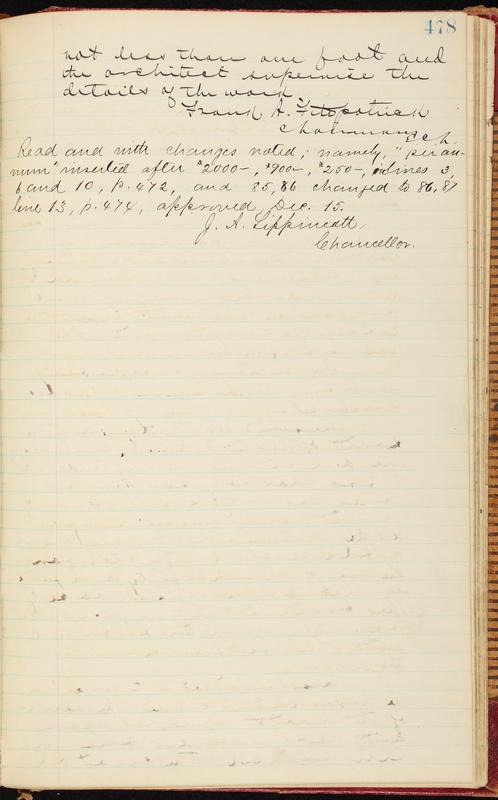 478
not less than one foot and
the architect supervise the
details of the work.
Frank A. Fitzpatrick
Chairman
Read and with changes noted; namely, "per an-
num" inserted after $2000-, $900-, $250-, in lines 3,
6 and 10, p. 472, and 85,86 changed to 86,87
line 13, p. 474, approved Dec. 15.
J. A. Lippincott,
Chancellor.